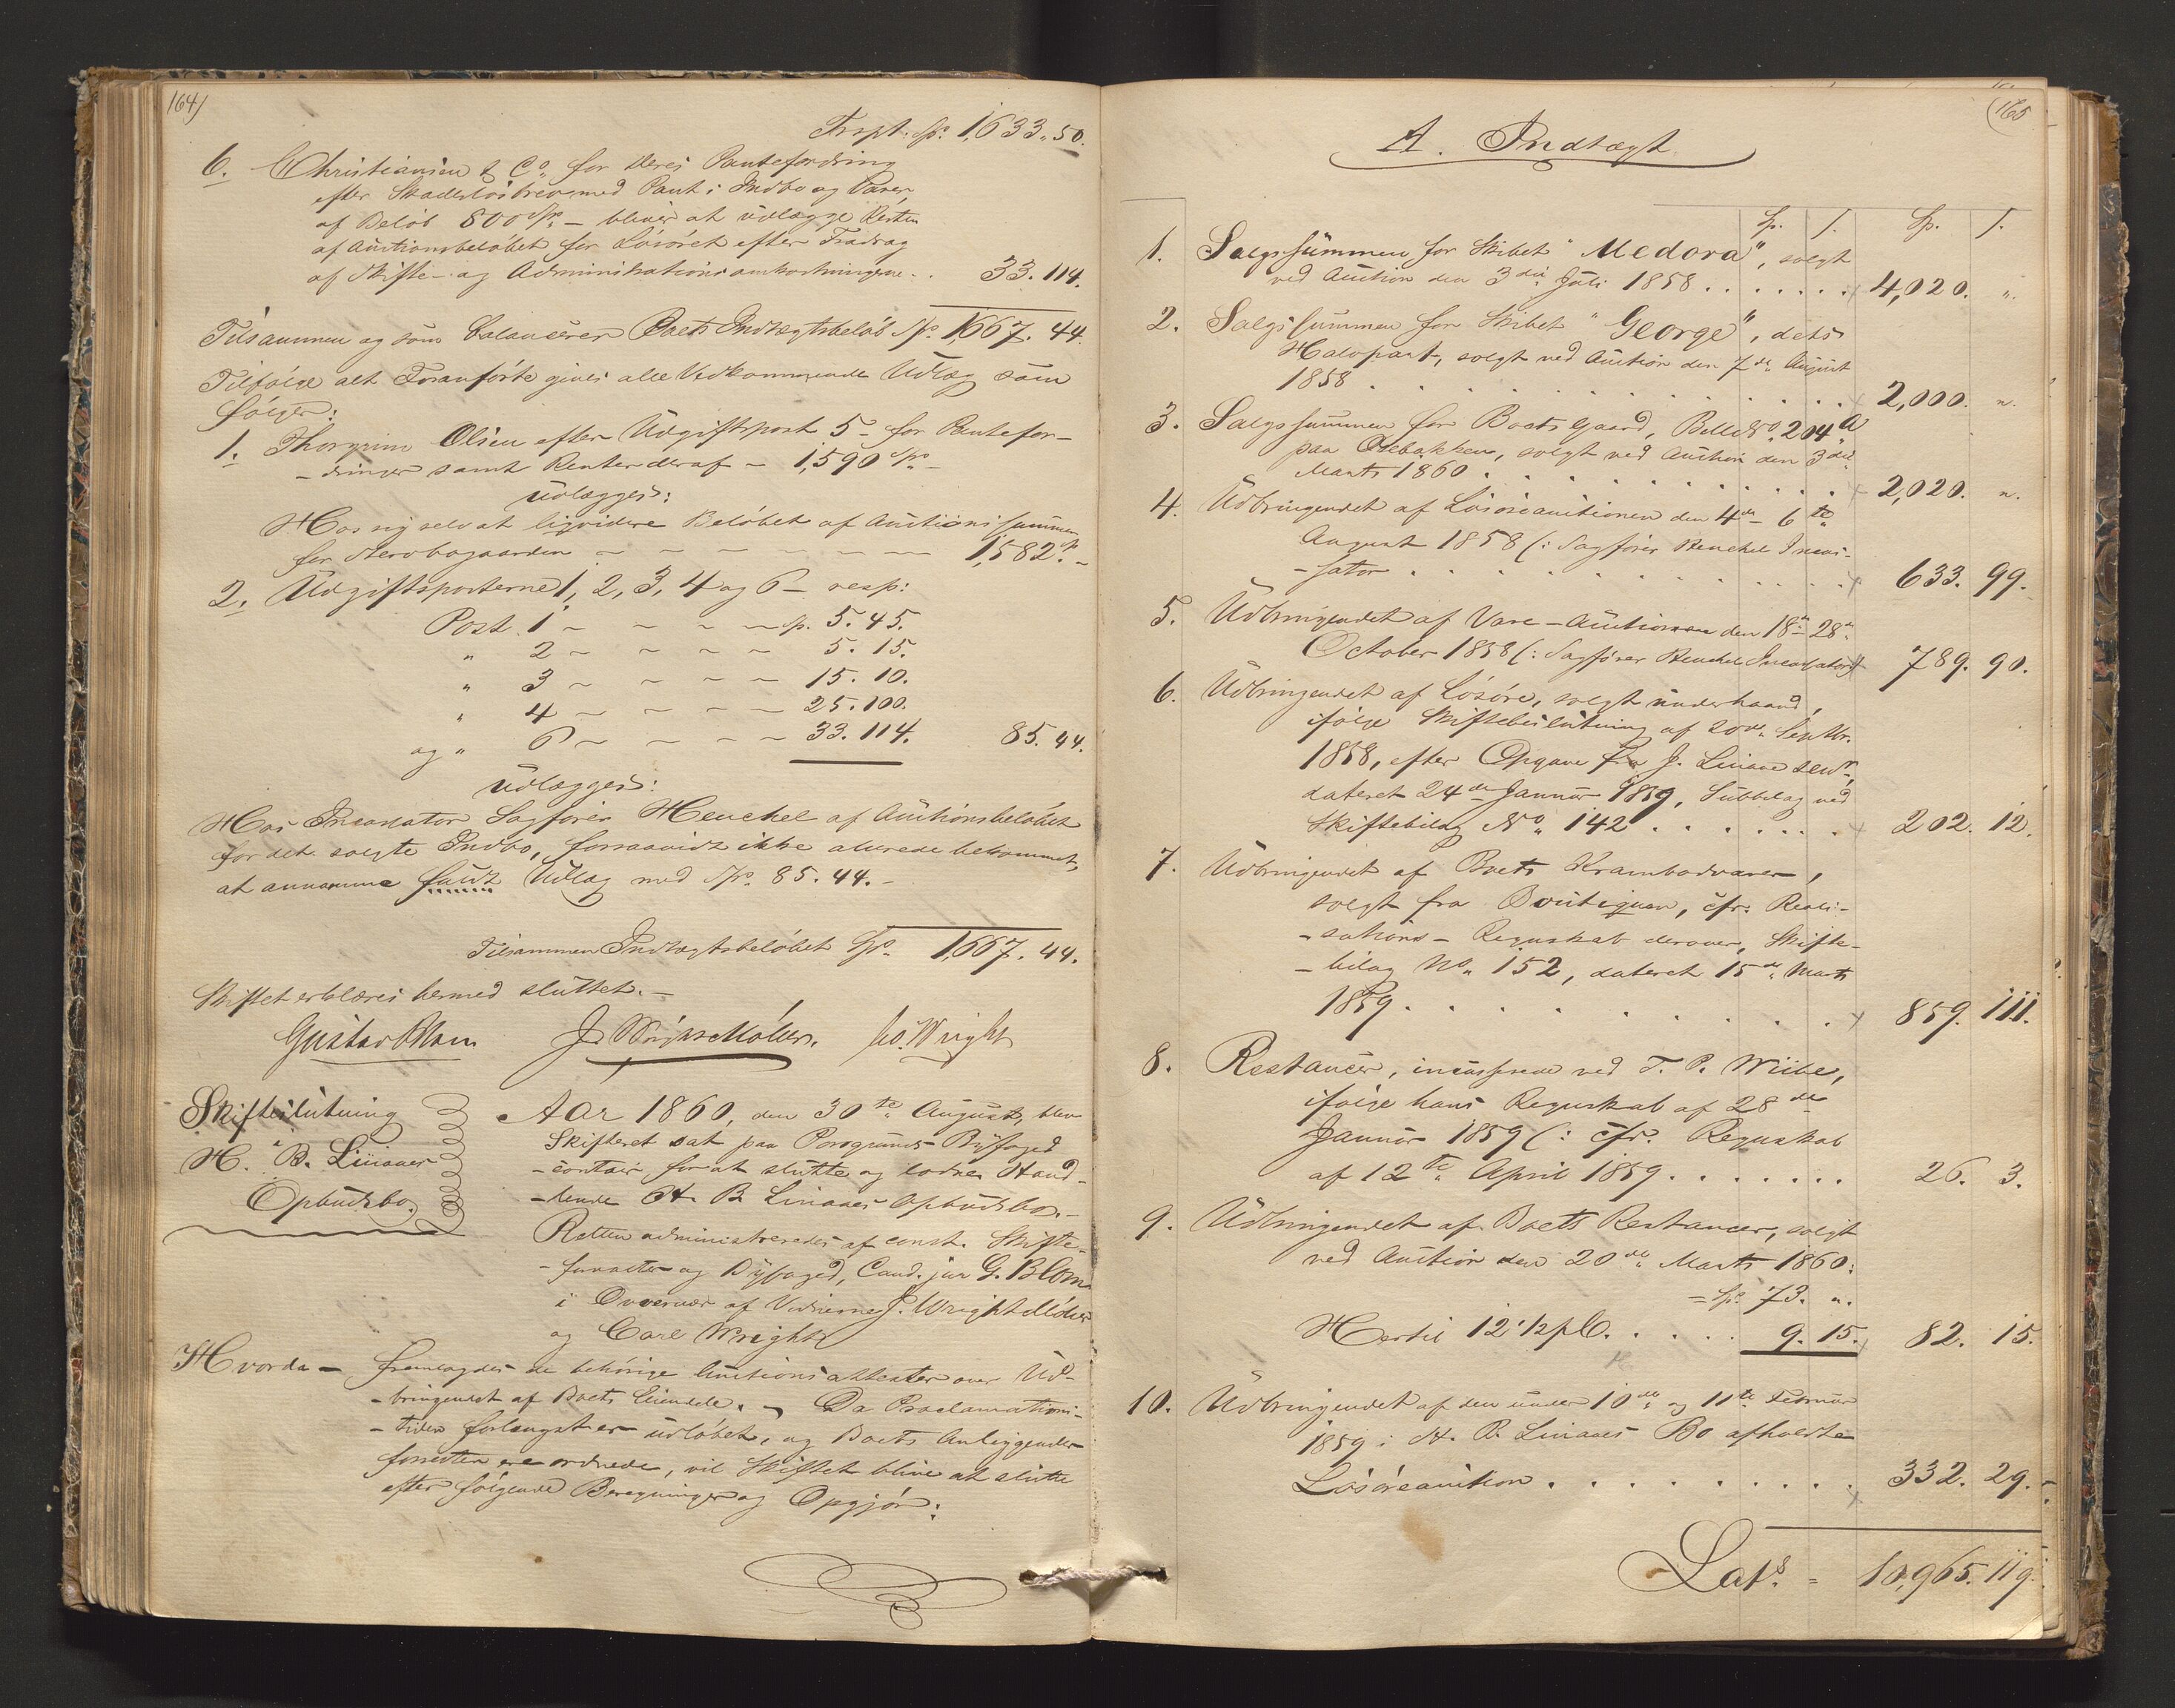 164)
Trspt. Sp. 1,633. 50.
6. Christiansen & Co. for deres Pantefordring
efter Skadesløsbrev med Pant i Indbo og Varer
af Beløb 800 Sp. – bliver at udlægge Resten
af Auctionsbeløbet for Løsøret efter Fradrag
af Skifte- og Administrationsomkostningerne . . 33. 114.
Tilsammen og som balancerer Boets Indtægtsbeløb Sp. 1,667. 44.
Tilfølge alt Foranførte gives alle Vedkommende Udlæg som
følger:
1. Thorgrim Olsen efter Udgiftspost 5 – for Pantefor-
-dringer samt Renter deraf – 1,590 Sp. –
udlægges:
Hos sig selv at liqvidere Beløbet af Auctionssummen
for Nerebogaarden – – – – – – – 1,582. –
2. Udgiftsposterne 1, 2, 3, 4 og 6 – resp:
Post 1 – – – – Sp. 5. 45.
" 2 – – – – 5. 15.
" 3 – – – – 15. 10.
" 4 – – – – 25. 100.
og " 6 – – – – 33. 114. 85. 44.
udlægges:
Hos Incassator Sagfører Henchel af Auctionsbeløbet
for det solgte Indbo, forsaavidt ikke allerede bekommet,
at annamme fuldt Udlæg med Sp. 85. 44. –
Tilsammen Indtægtsbeløbet Sp. 1,667. 44.
Skiftet erklæres hermed sluttet. –
Gustav Blom J. Wright Møller. C. Wright
Skifteslutning
H. B. Linaaes
Opbudsbo.
Aar 1860, den 30te August, blev
Skifteret sat paa Porsgrunds Byfoged
-contoir for at slutte og lodne Hand-
-lende H. B. Linaaes Opbudsbo. –
Retten administreredes af const. Skifte-
-forvalter og Byfoged, Cand. jur G. Blom
i Overvær af Vidnerne J. Wright Møller
og Carl Wright
Hvorda – fremlagdes de behørige Auctionsattester over Ud-
-bringendet af Boets Eiendele. – Da Proclamations-
-tiden forlængst er udløbet, og Boets Anliggender
forresten ere ordnede, vil Skiftet blive at slutte
efter følgende Beregninger og Opgjør:
(165
A. Indtægt
Sp. s. Sp. s.
1. Salgssummen for Skibet "Medora", solgt
ved Auction den 3die Juli 1858 . . . . . . . 4,020. "
2. Salgssummen for Skibet "George", dets
Halvpart, solgt ved Auction den 7de August
1858 . . . . . . . . . . . 2,000. "
3. Salgssummen for Boets Gaard, Bolle No. 204 a
paa Osebakken, solgt ved Auction den 3die
Marts 1860 . . . . . . . . . . . 2,020. "
4. Udbringendet af Løsøreauctionen den 4de – 6te
August 1858 (: Sagfører Henchel Incas-
-sator . . . . . . . . . . . 633. 99.
5. Udbringendet af Vare-Auctionen den 18de 28de
October 1858 (: Sagfører Henchel Incassator) 789. 90.
6. Udbringendet af Løsøre, solgt underhaand,
ifølge Skiftebeslutning af 20de Septbr.
1858, efter Opgave fra J. Linaae senr.,
dateret 24de Januar 1859, Subbilag ved
Skiftebilag No. 142 . . . . . . . 202. 12.
7. Udbringendet af Boets Krambodvarer,
solgt fra Boutiquen, cfr. Reali-
-sations-Regnskab derover, Skifte-
-bilag No. 152, dateret 15de Marts
1859 . . . . . . . . . . 859. 111.
8. Restancer, incasserede ved T. P. Wiibe,
ifølge hans Regnskab af 28de
Januar 1859 (: cfr. Regnskab
af 12te April 1859 . . . . . . . 26. 3.
9. Udbringendet af Boets Restancer, solgt
ved Auction den 20de Marts 1860:
= Sp. 73. "
Hertil 12 1/2 pC. . . . . . 9. 15. 82. 15.
10. Udbringendet af den under 10de og 11te Februar
1859 i H. B. Linaaes Bo afholdte
Løsøreauction . . . . . . . . . 332. 29. –
Lats. = 10,965. 119.